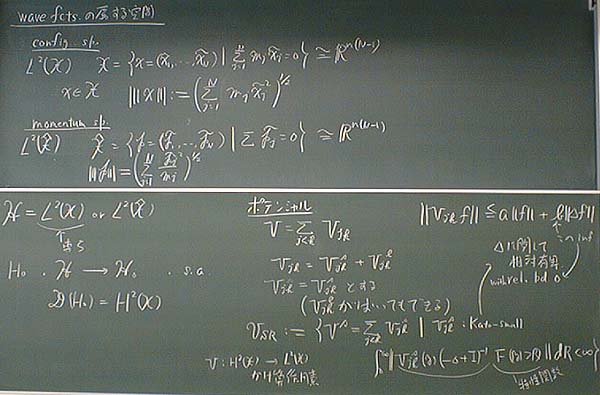 wave fcts. の属する空間
config. sp.
L²(X) X = {x = (x̃₁, …, x̃_N) | Σ_{j=1}^N m_j x̃_j = 0} ≅ R^{n(N-1)}
x ∈ X |||x||| := (Σ_{j=1}^N m_j x̃_j²)^{1/2}
momentum sp.
L²(X̂) X̂ = {p = (p̃₁, …, p̃_N) | Σ p̃_j = 0} ≅ R^{n(N-1)}
|||p||| = (Σ_{j=1}^N p̃_j²/m_j)^{1/2}
H = L²(X) or L²(X̂)
H₀ : H → H, s.a
D(H₀) = H²(X)
ポテンシャル
V = Σ_{j<k} V_{jk}
V_{jk} = V_{jk}^s + V_{jk}^l
V_{jk} = V_{jk}^s とする
(V_{jk}^l がはいってもできる)
V_{SR} := {V^s = Σ_{j<k} V_{jk}^s | V_{jk}^s : Kato-small
∫₀^∞ ||V_{jk}^s(y)(-Δ+I)^{-1} F(|y|>R)|| dR < ∞}
特性関数
V : H²(X) → L²(X)
かけ算作用素
||V_{jk} f|| ≤ a||f|| + b||Δf||
inf
Δに関して
相対有界
with rel. bd 0